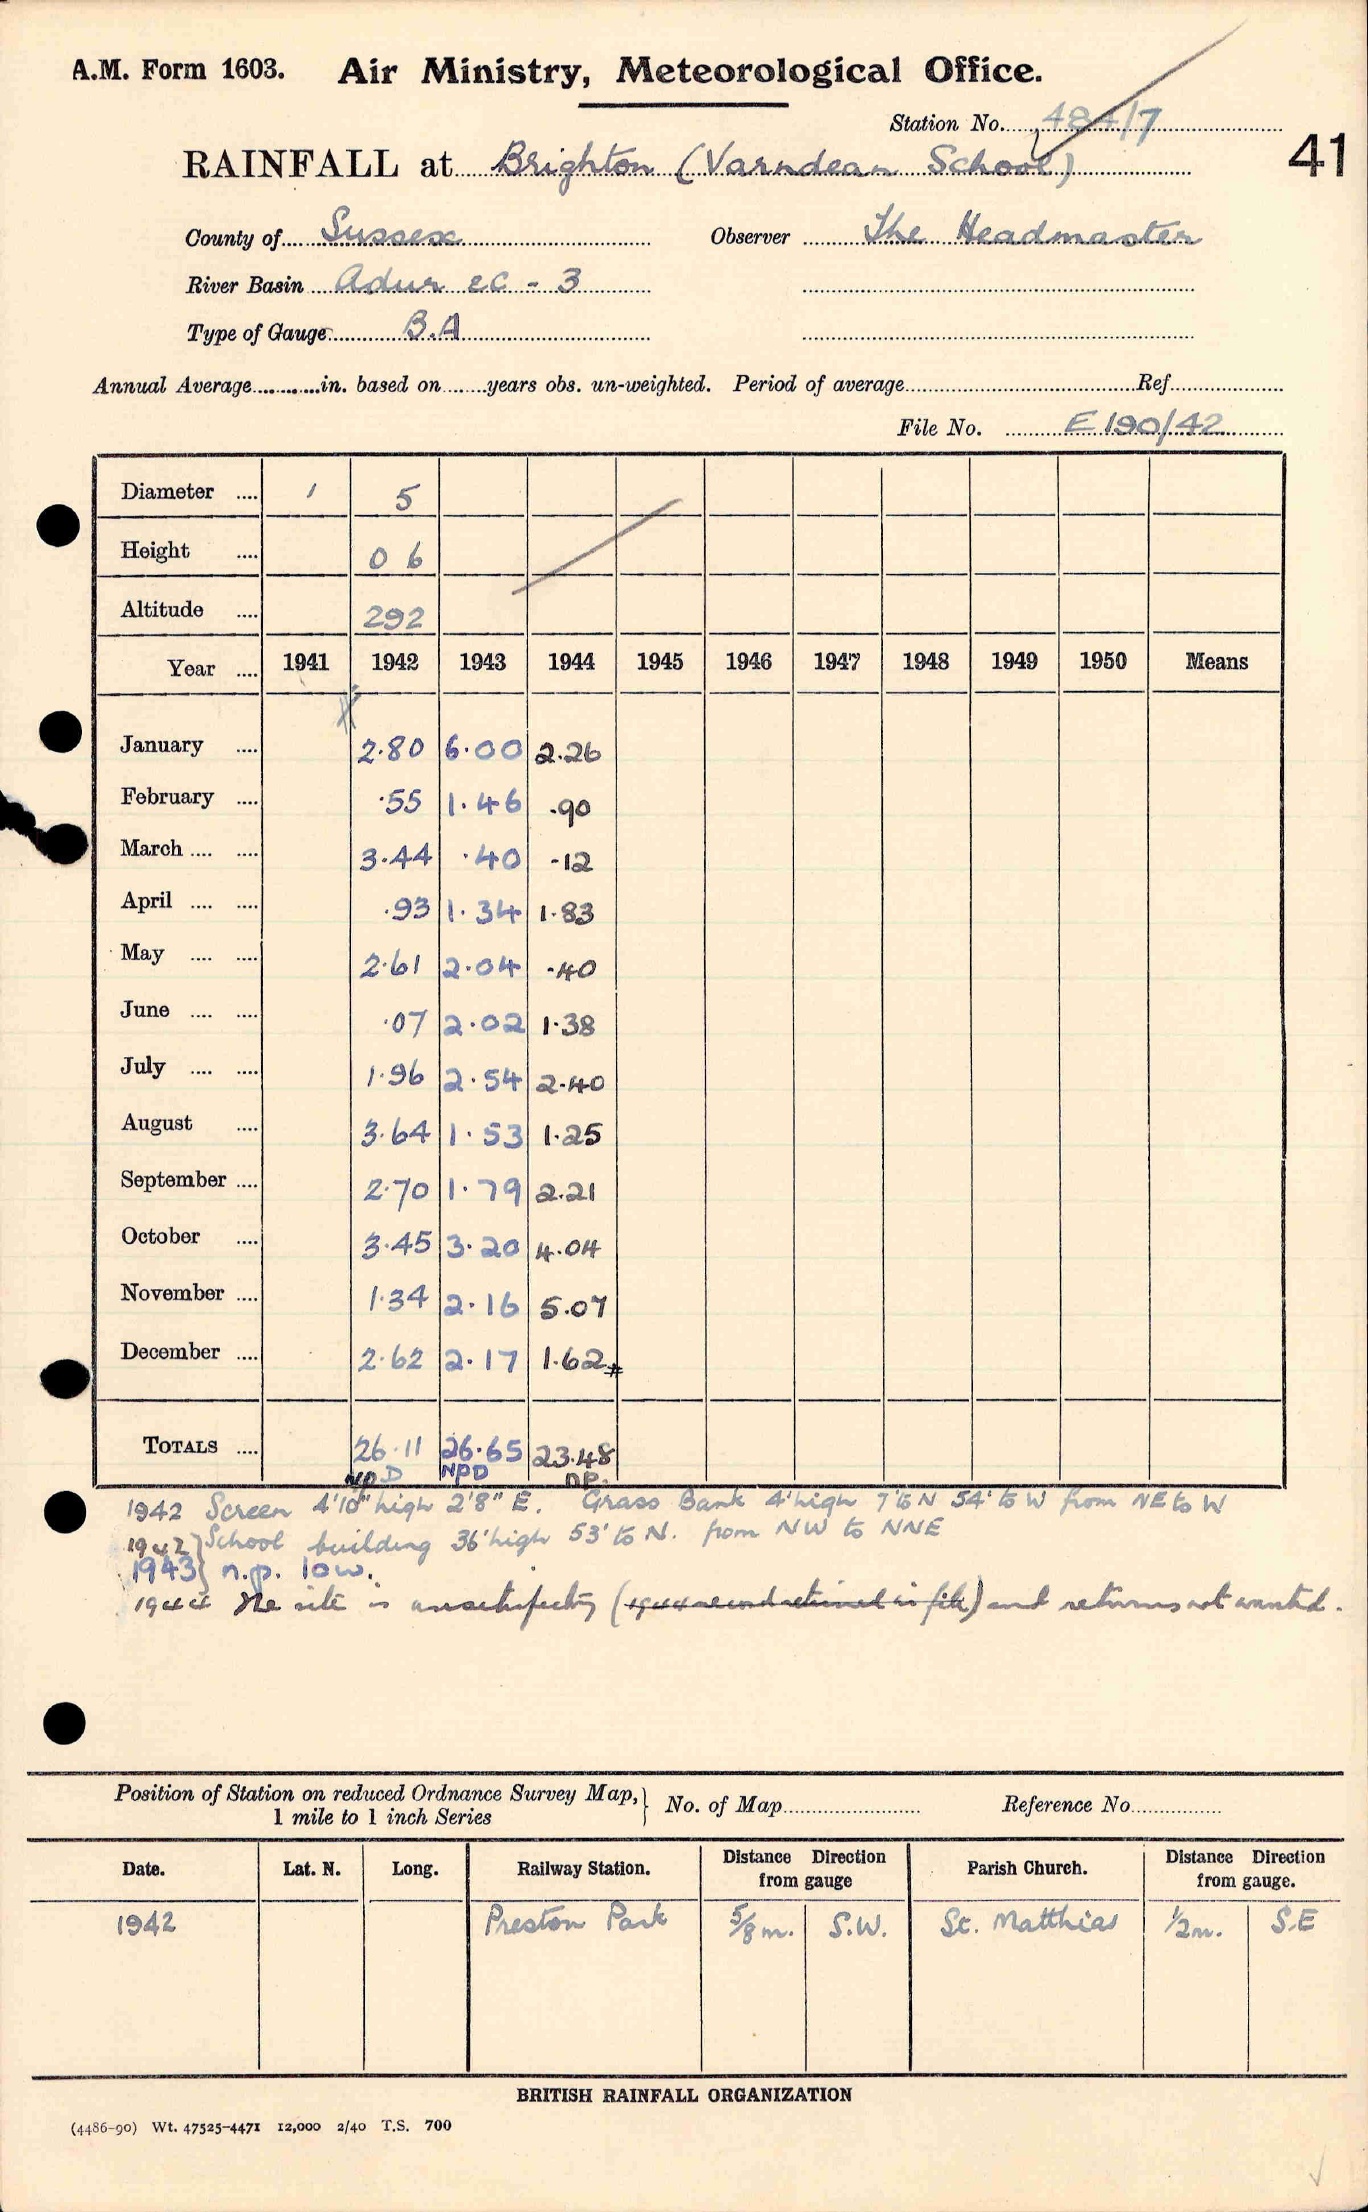 A.M. Form 1603. Air Ministry, Meteorological Office.
Station No. 484/7
41
RAINFALL at Brighton (Varndean School)
County of Sussex Observer The Headmaster
River Basin Adur &C - 3
Type of Gauge B.A
Annual Average in. based on years obs. un-weighted. Period of average Ref.
File No. E190/42
Diameter 1 5
Height 0 6
Altitude 292
Year 1941 1942 1943 1944 1945 1946 1947 1948 1949 1950 Means
January 2.80 6.00 2.26
February .55 1.46 .90
March 3.44 .40 .12
April .93 1.34 1.83
May 2.61 2.04 .40
June .07 2.02 1.38
July 1.96 2.54 2.40
August 3.64 1.53 1.25
September 2.70 1.79 2.21
October 3.45 3.20 4.04
November 1.34 2.16 5.07
December 2.62 2.17 1.62
TOTALS 26.11 26.65 23.48
NPD NPD np.
1942 Screen 4'10" high 2'8" E. Grass Bank 4' high 7' to N 54' to W from NE to W
1942 } School building 36' high 53' to N. from NW to NNE
1943 } n.p. low.
1944 The site is unsatisfactory (1944 record retained in file) and returns not wanted.
Position of Station on reduced Ordnance Survey Map, } No. of Map Reference No.
1 mile to 1 inch Series
Date. Lat. N. Long. Railway Station. Distance Direction from gauge Parish Church. Distance Direction from gauge.
1942 Preston Park 5/8 m. S.W. St. Matthias 1/2 m. S.E
BRITISH RAINFALL ORGANIZATION
(4486-90) Wt. 47525-4471 12,000 2/40 T.S. 700